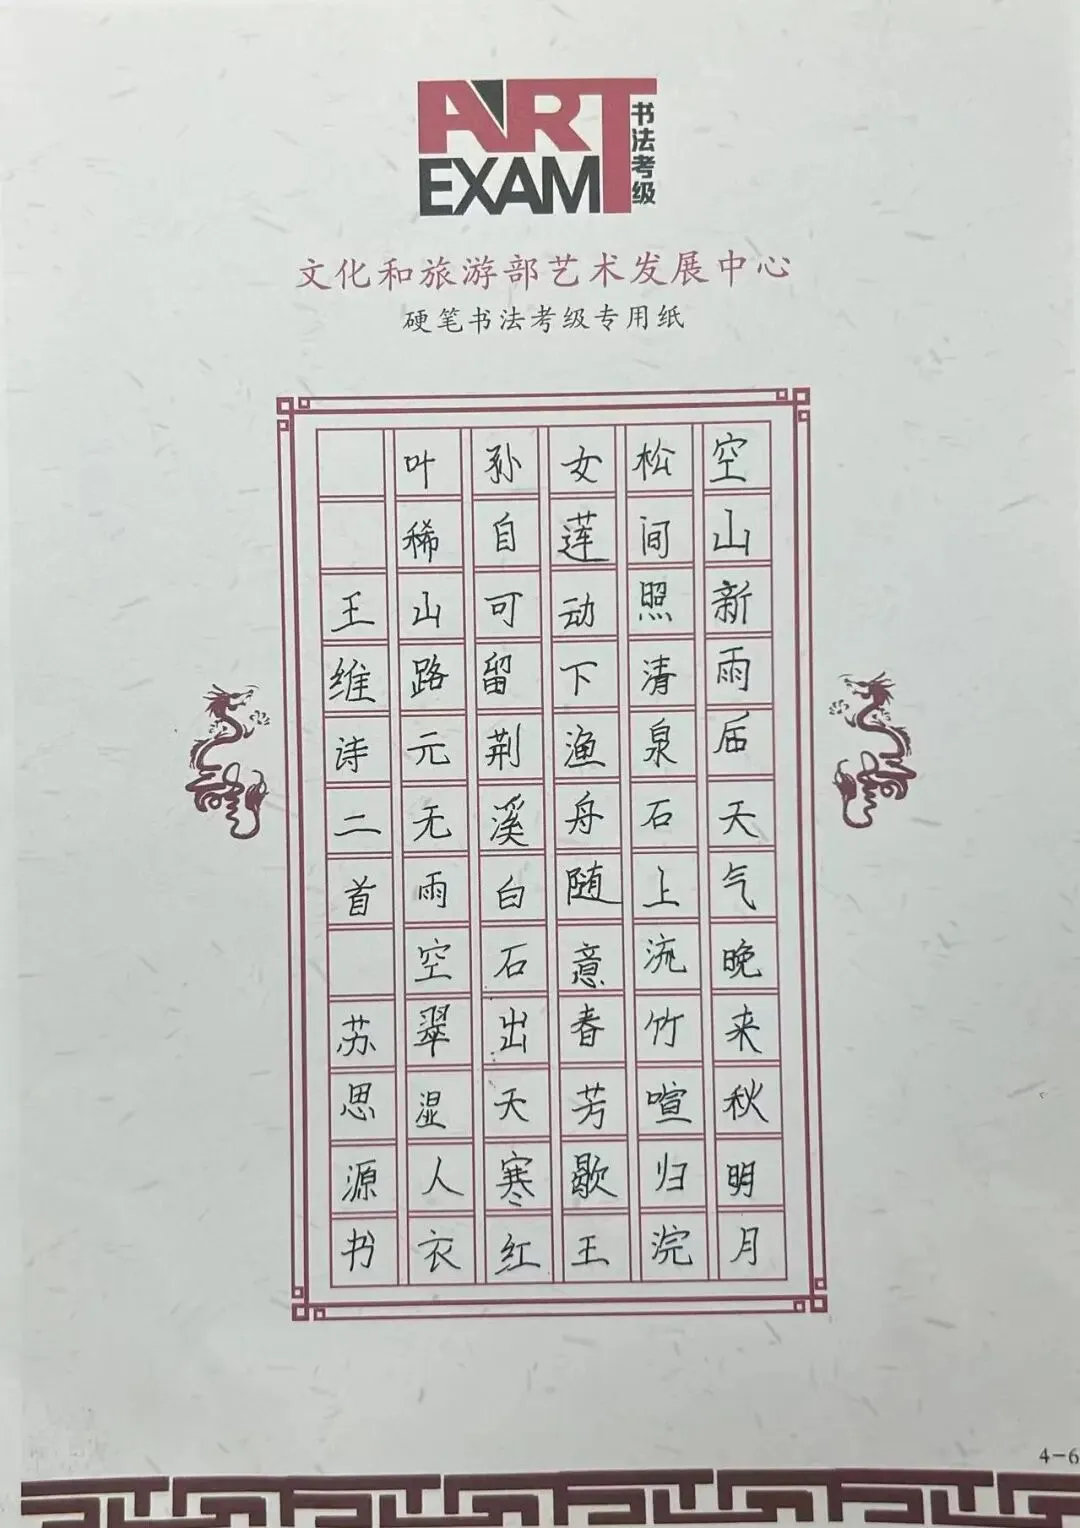 ART
EXAM
书法考级
文化和旅游部艺术发展中心
硬笔书法考级专用纸
空山新雨后天气晚来秋明月
松间照清泉石上流竹喧归浣
女莲动下渔舟随意春芳歇王
孙自可留荆溪白石出天寒红
叶稀山路元无雨空翠湿人衣
王维诗二首 苏思源书
4-6